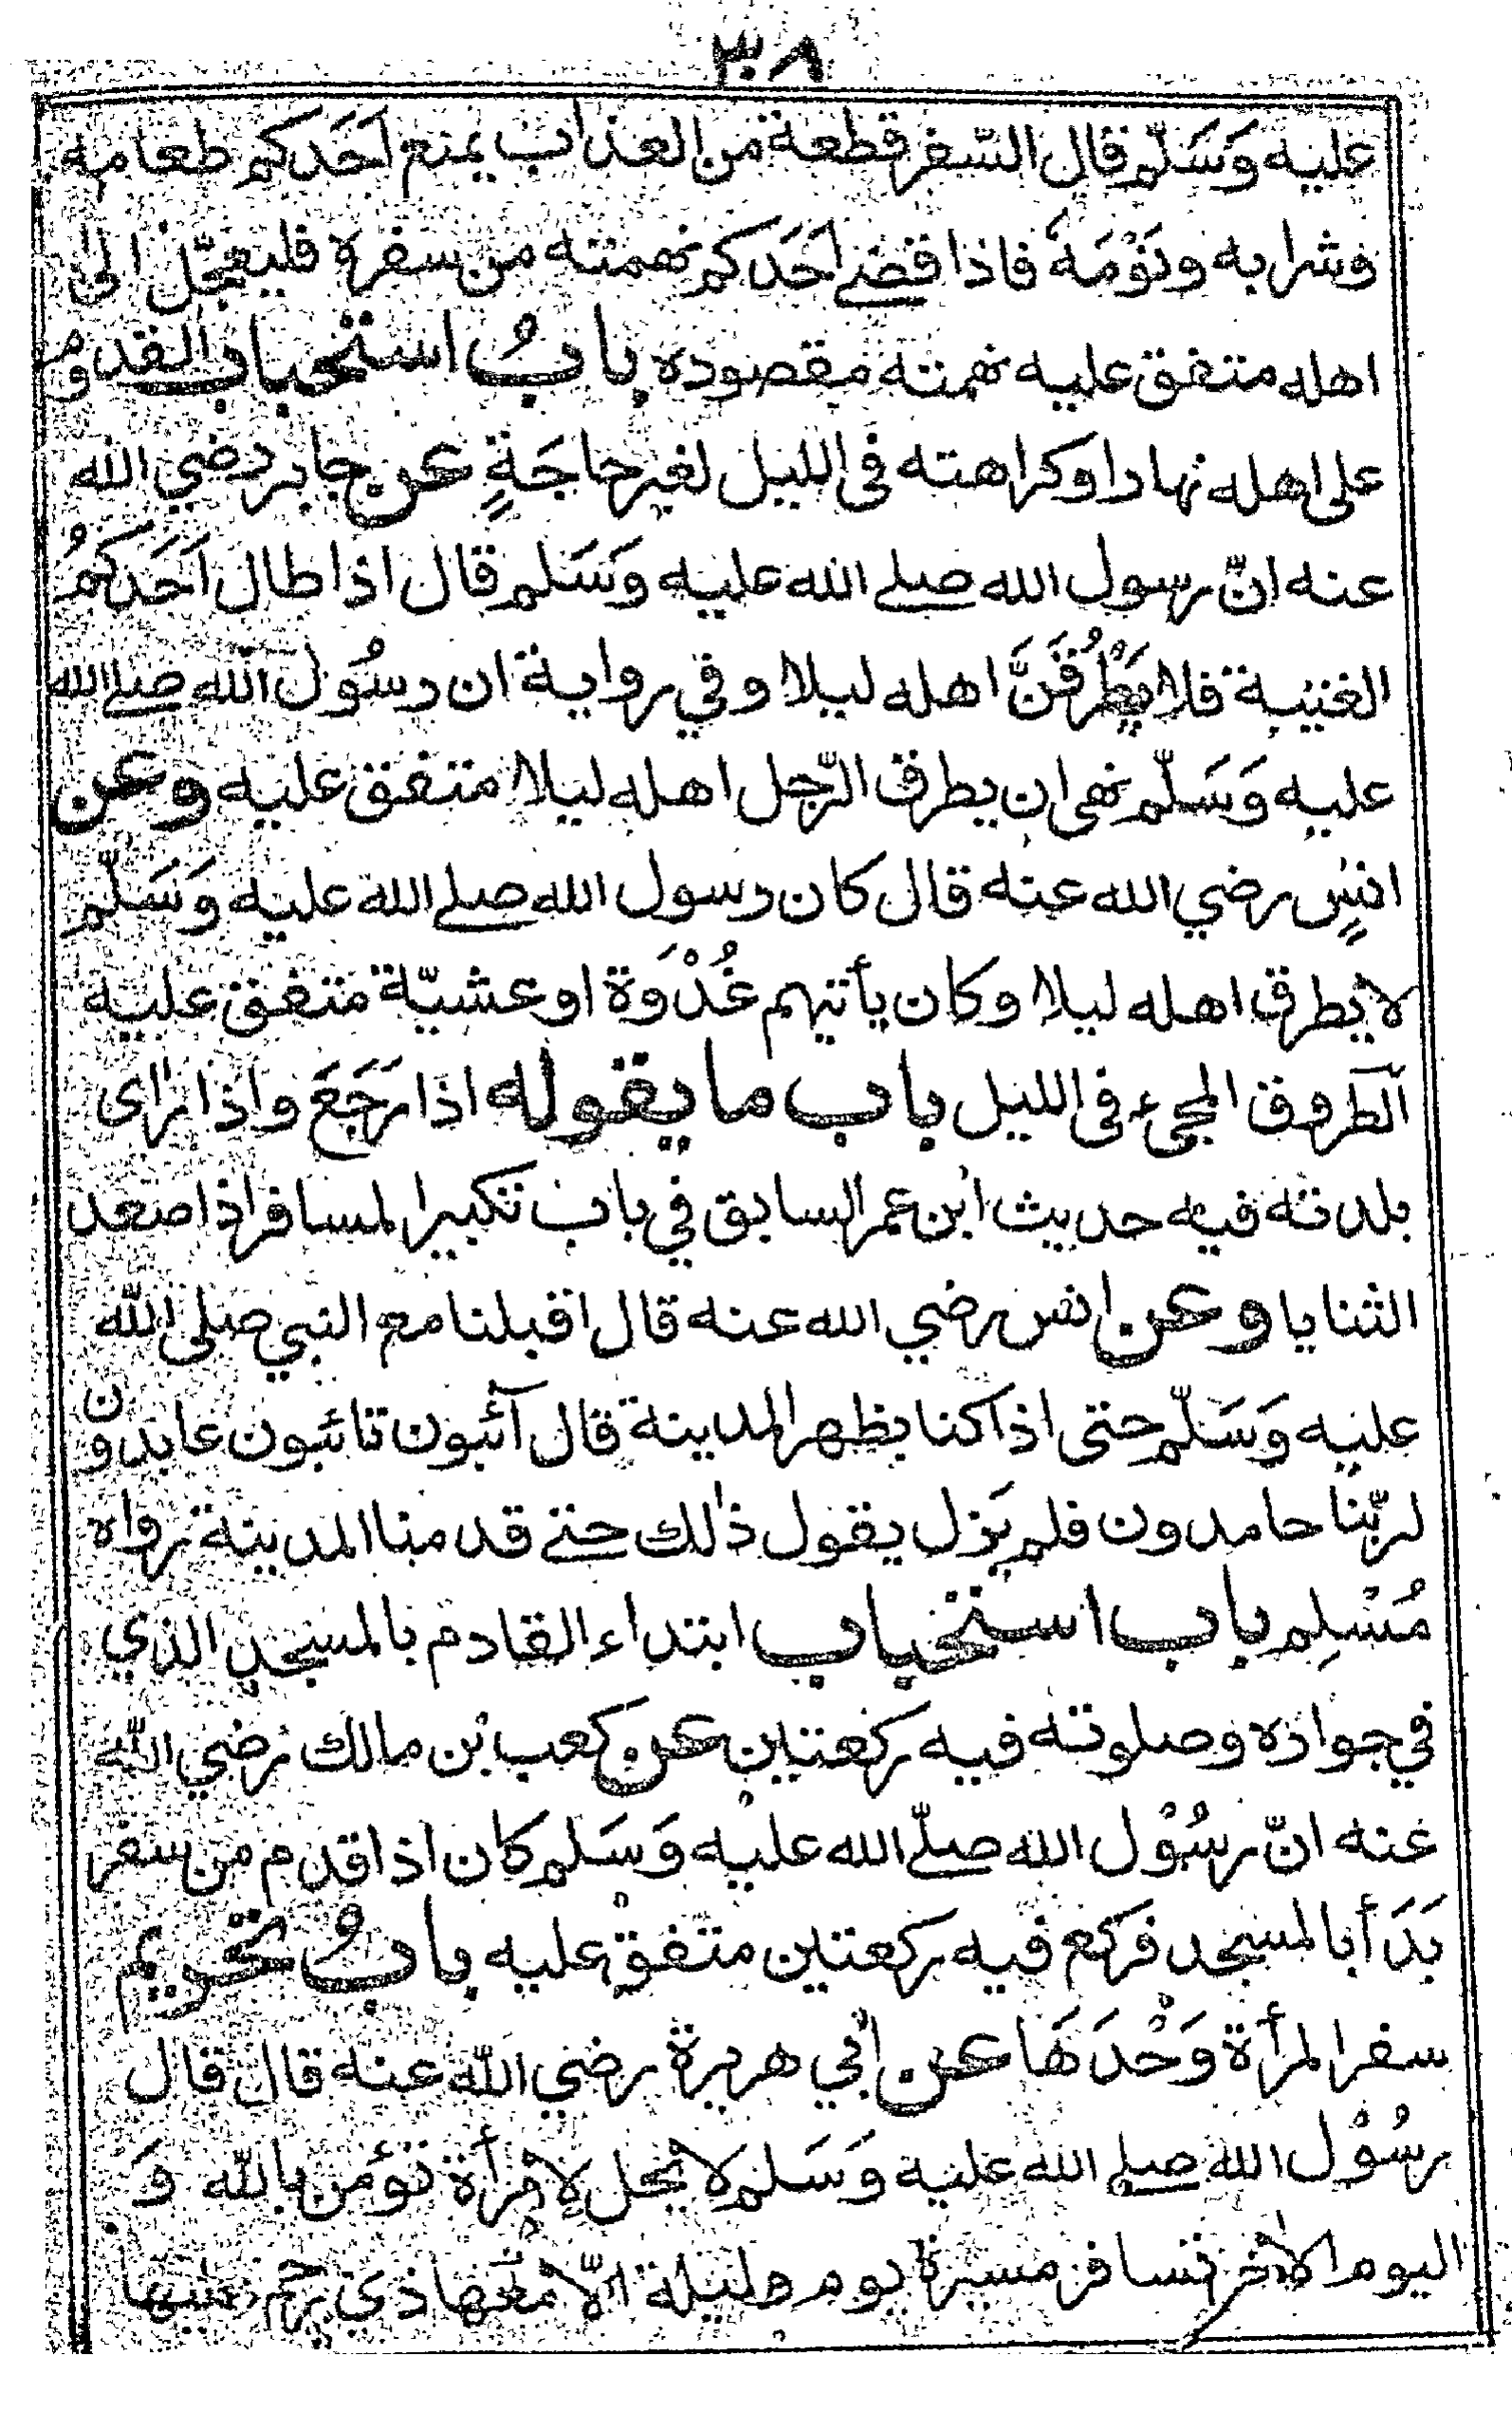 ٣٠٨
عليه وَسَلّم قال السّفر قطعة من العذاب يمنع اَحَدكم طعامه
وشرابه ونَوْمَهٗ فاذا قضے اَحَدكم نهمته من سفره فليعجّل الى
اهله متفق عليه نهمته مقصوده بابُ استحباب القدوم
على اهله نهارا وكراهته فى الليل لغير حاجَةٍ عن جابر رضي الله
عنه انّ رسول الله صلے الله عليه وَسَلم قال اذا طال اَحَدكمُ
الغيبة فلا يَطْرُقَنَّ اهله ليلا وفي رواية ان رسُول الله صلے الله
عليه وَسَلّم نهى ان يطرق الرّجل اهله ليلا متفق عليه وعن
انسٍ رضي الله عنه قال كان رسول الله صلے الله عليه وَسَلّم
لا يطرق اهله ليلا وكان يأتيهم غُدْوَة او عشيّة متفق عليه
الطروق المجىء فى الليل باب ما يقوله اذا رَجَعَ واذا راى
بلدته فيه حديث ابن عمر السابق في باب تكبير المسافر اذا صعد
الثنايا وعن انس رضي الله عنه قال اقبلنا مع النبي صلى الله
عليه وَسَلّم حتى اذا كنا بظهر المدينة قال آئبون تائبون عابدون
لربّنا حامدون فلم يَزل يقول ذٰلك حتے قدمنا المدينة رواه
مُسْلِم باب استحباب ابتداء القادم بالمسجد الذي
في جواره وصلوته فيه ركعتين عن كعب بن مالك رضي الله
عنه انّ رسُوْل الله صلّے الله عليه وَسَلم كان اذا قدم من سفر
بَدَأ بالمسجد فركع فيه ركعتين متفق عليه بابُ تحريم
سفر المرأة وَحْدَهَا عن ابي هريرة رضي الله عنه قال قال
رسُوْل الله صلے الله عليه وَسَلم لا يحل لِامْرأة تؤمن بالله وَ
اليوم الاٰخر تسافر مسيرة يوم وليلة الّا معها ذي رحم